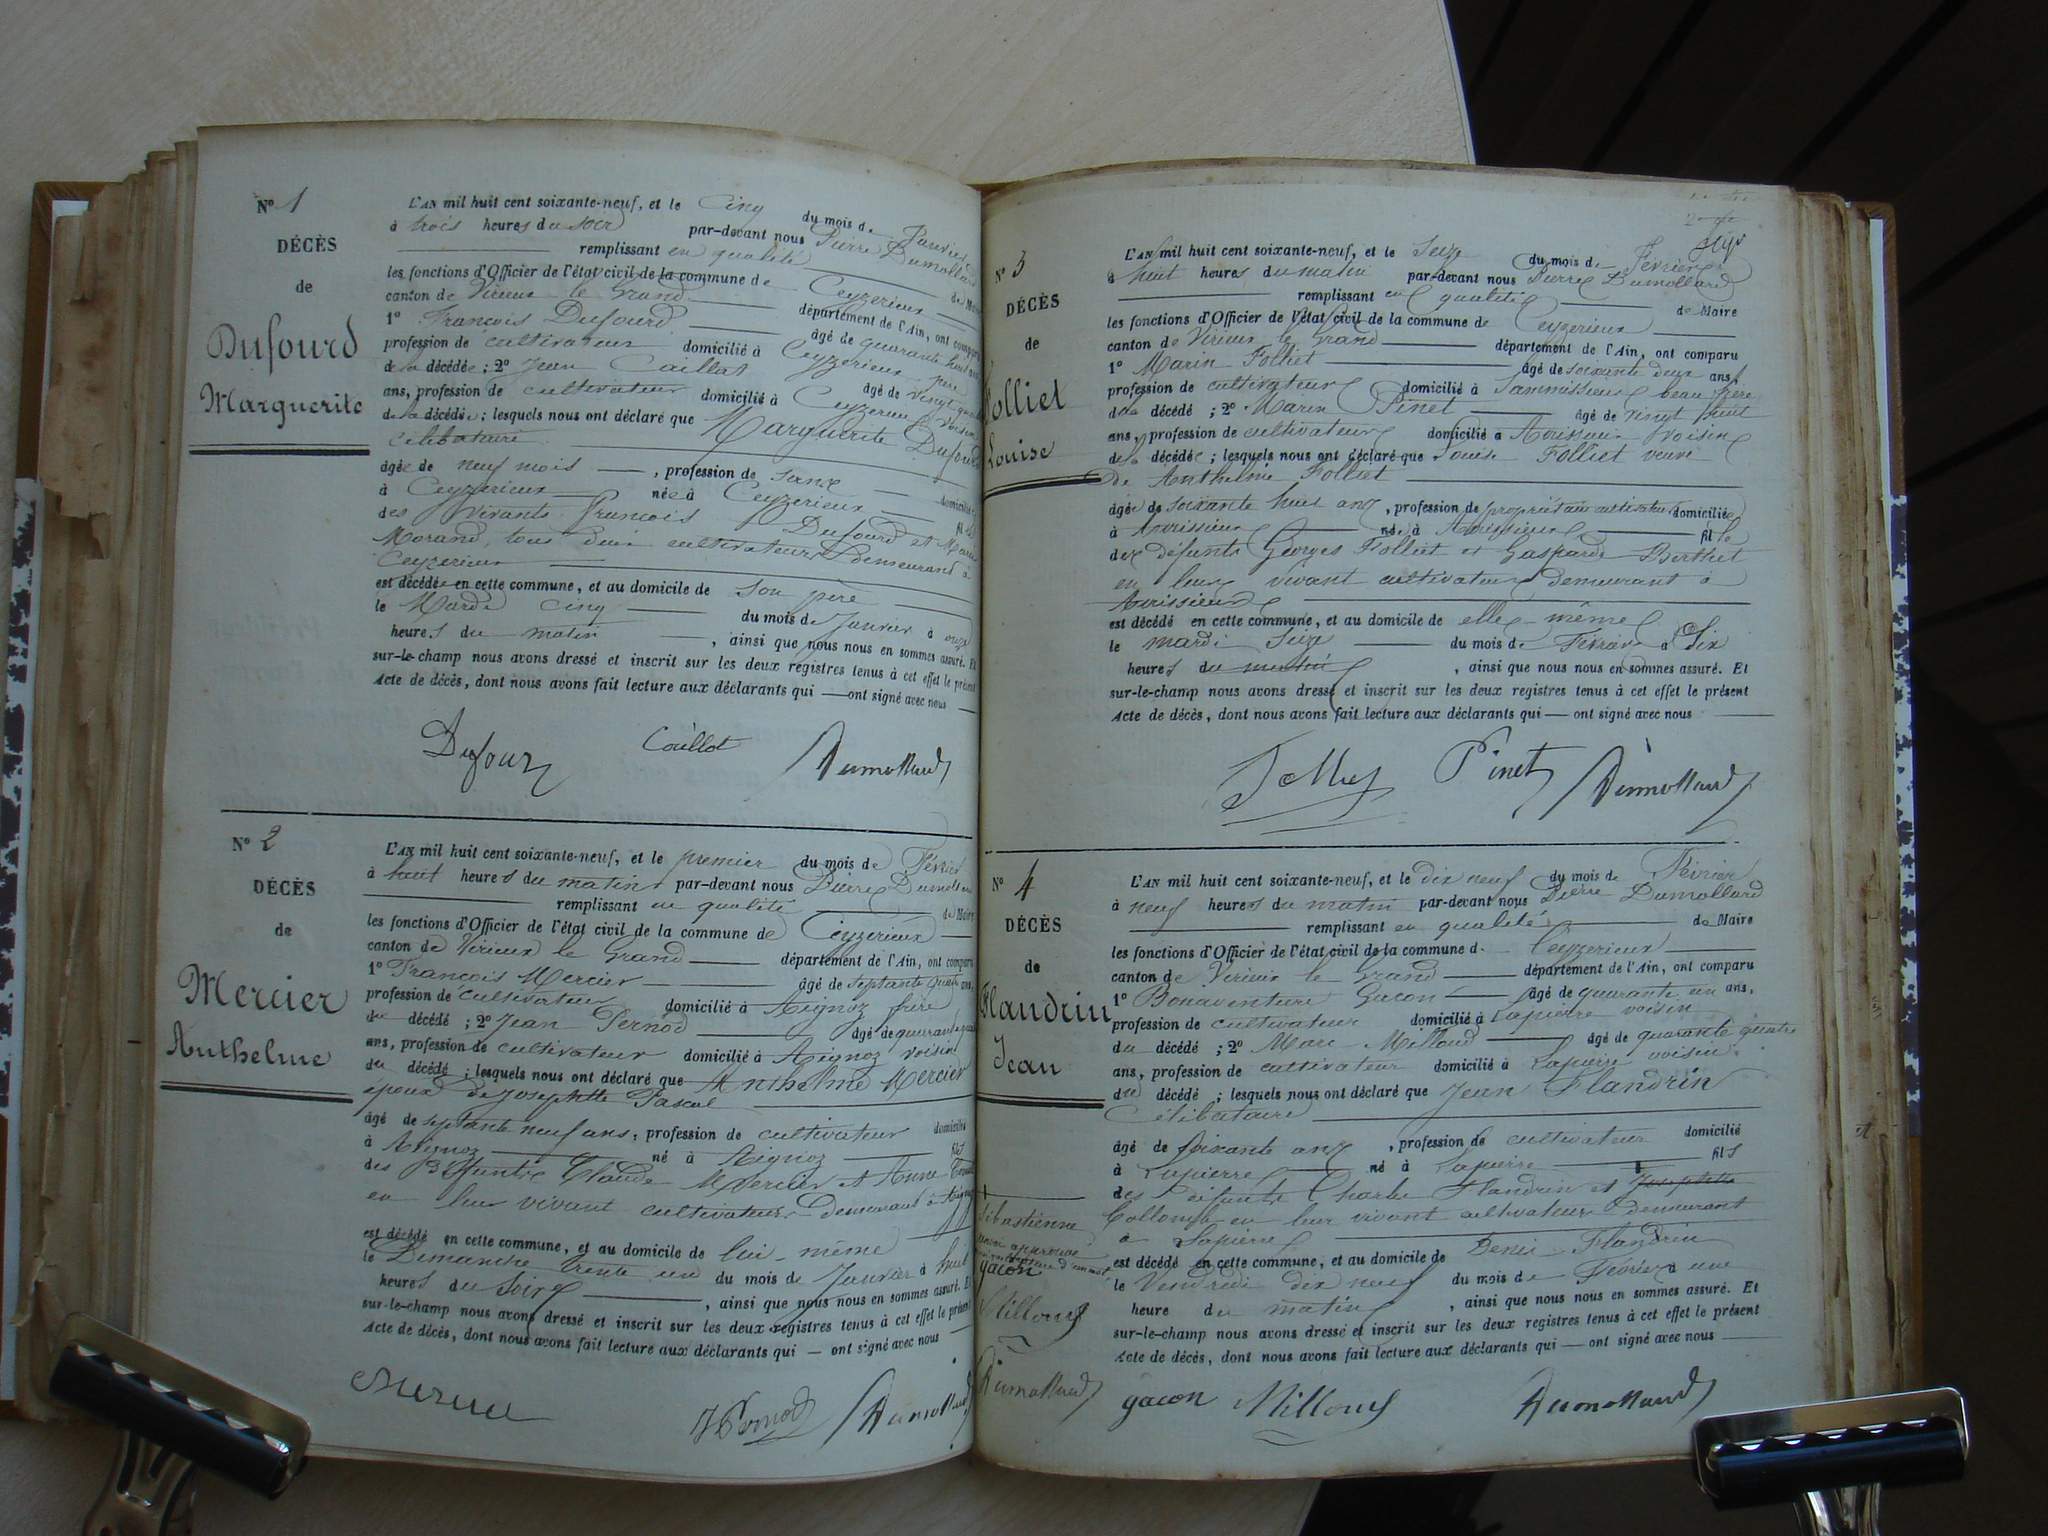 Nº 1
DÉCÈS
de
Dufourd
Marguerite
L'AN mil huit cent soixante-neuf, et le Cinq du mois de Janvier
à trois heures du soir par-devant nous Pierre Dumollard
remplissant en qualité de Maire
les fonctions d'Officier de l'état civil de la commune de Ceyzerieux
canton de Virieux le Grand département de l'Ain, ont comparu
1º François Dufourd âgé de quarante huit ans
profession de cultivateur domicilié à Ceyzerieux père
de la décédée ; 2º Jean Caillot âgé de vingt quatre
ans, profession de cultivateur domicilié à Ceyzerieux voisin
de la décédée ; lesquels nous ont déclaré que Marguerite Dufourd
célibataire
âgée de neuf mois , profession de sans domiciliée
à Ceyzerieux née à Ceyzerieux fille
des vivants François Dufourd et Marie
Morand, tous deux cultivateurs demeurant à
Ceyzerieux
est décédée en cette commune, et au domicile de son père
le Mardi cinq du mois de Janvier à onze
heures du matin , ainsi que nous nous en sommes assuré. Et
sur-le-champ nous avons dressé et inscrit sur les deux registres tenus à cet effet le présent
Acte de décès, dont nous avons fait lecture aux déclarants qui ont signé avec nous
Dufour Caillot Dumollard
Nº 2
DÉCÈS
de
Mercier
Anthelme
L'AN mil huit cent soixante-neuf, et le premier du mois de Février
à huit heures du matin par-devant nous Pierre Dumollard
remplissant en qualité de Maire
les fonctions d'Officier de l'état civil de la commune de Ceyzerieux
canton de Virieux le Grand département de l'Ain, ont comparu
1º François Mercier âgé de septante quatre ans,
profession de cultivateur domicilié à Aignoz frère
du décédé ; 2º Jean Pernod âgé de quarante
ans, profession de cultivateur domicilié à Aignoz voisin
du décédé ; lesquels nous ont déclaré que Anthelme Mercier
époux de Josephtte Pascal
âgé de septante neuf ans, profession de cultivateur domicilié
à Aignoz né à Aignoz fils
des défunts Claude Mercier et Anne
en leur vivant cultivateurs demeurant à Aignoz
est décédé en cette commune, et au domicile de lui-même
le Dimanche trente un du mois de Janvier à huit
heures du soir , ainsi que nous nous en sommes assuré. Et
sur-le-champ nous avons dressé et inscrit sur les deux registres tenus à cet effet le présent
Acte de décès, dont nous avons fait lecture aux déclarants qui ont signé avec nous
JPernod Dumollard
Nº 3
DÉCÈS
de
Folliet
Louise
L'AN mil huit cent soixante-neuf, et le Seize du mois de Février
à huit heures du matin par-devant nous Pierre Dumollard
remplissant en qualité de Maire
les fonctions d'Officier de l'état civil de la commune de Ceyzerieux
canton de Virieux le Grand département de l'Ain, ont comparu
1º Marin Folliet âgé de soixante deux ans
profession de cultivateur domicilié à Sammissieux beau frère
de la décédé ; 2º Marin Pinet âgé de vingt huit
ans, profession de cultivateur domicilié à Avrissieux voisin
de la décédé ; lesquels nous ont déclaré que Louise Folliet veuve
de Anthelme Folliet
âgée de soixante huit ans , profession de propriétaire cultivateur domiciliée
à Avrissieux née à Avrissieux fille
des défunts Georges Folliet et Gasparde Berthet
en leurs vivant cultivateurs demeurant à
Avrissieux
est décédé en cette commune, et au domicile de elle-même
le mardi Seize du mois de Février à Six
heures du matin , ainsi que nous nous en sommes assuré. Et
sur-le-champ nous avons dressé et inscrit sur les deux registres tenus à cet effet le présent
Acte de décès, dont nous avons fait lecture aux déclarants qui ont signé avec nous
Pinet Dumollard
Nº 4
DÉCÈS
de
Flandrin
Jean
L'AN mil huit cent soixante-neuf, et le dix neuf du mois de Février
à neuf heures du matin par-devant nous Pierre Dumollard
remplissant en qualité de Maire
les fonctions d'Officier de l'état civil de la commune de Ceyzerieux
canton de Virieux le Grand département de l'Ain, ont comparu
1º Bonaventure Gacon âgé de quarante un ans,
profession de cultivateur domicilié à Lapierre voisin
du décédé ; 2º Marc Milloud âgé de quarante quatre
ans, profession de cultivateur domicilié à Lapierre voisin
du décédé ; lesquels nous ont déclaré que Jean Flandrin
Célibataire
âgé de soixante ans , profession de cultivateur domicilié
à Lapierre né à Lapierre fils
des défunts Charles Flandrin et Josephtte
Collomb en leur vivant cultivateurs demeurant
à Lapierre
est décédé en cette commune, et au domicile de Denis Flandrin
le Vendredi dix neuf du mois de Février à une
heure du matin , ainsi que nous nous en sommes assuré. Et
sur-le-champ nous avons dressé et inscrit sur les deux registres tenus à cet effet le présent
Acte de décès, dont nous avons fait lecture aux déclarants qui ont signé avec nous
Sébastienne
d'un mot
gacon
Milloud
Dumollard
gacon Milloud Dumollard